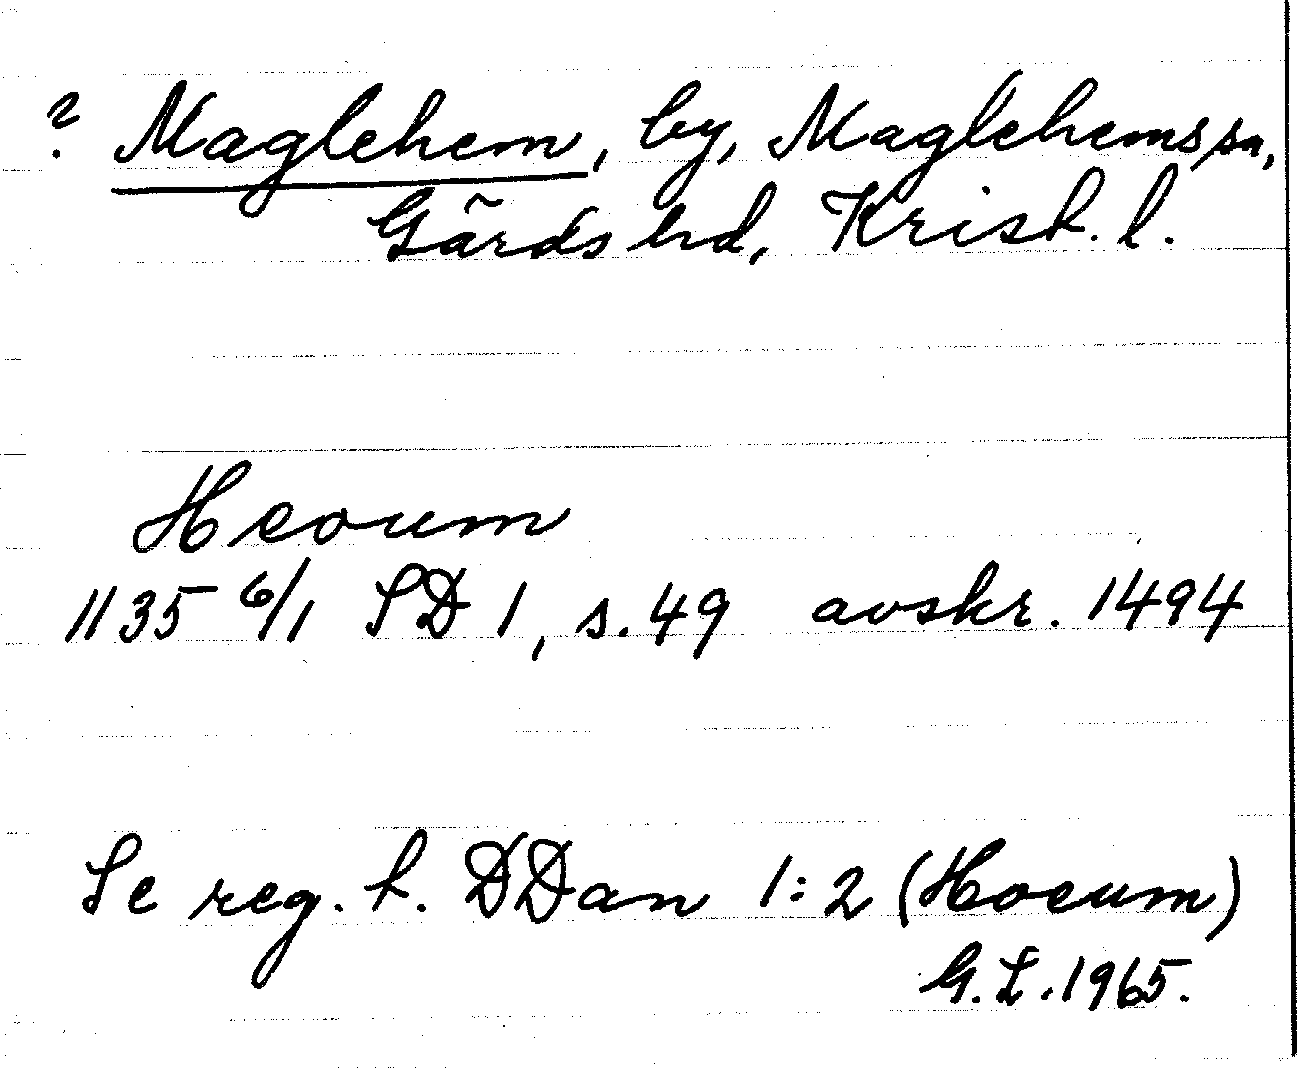 ? Maglehem, by, Maglehems sn,
Gärds hd, Krist. l.
Heoum
1135 6/1 SD 1, s. 49 avskr. 1494
Se reg. t. DDan 1:2 (Hoeum)
G. L. 1965.